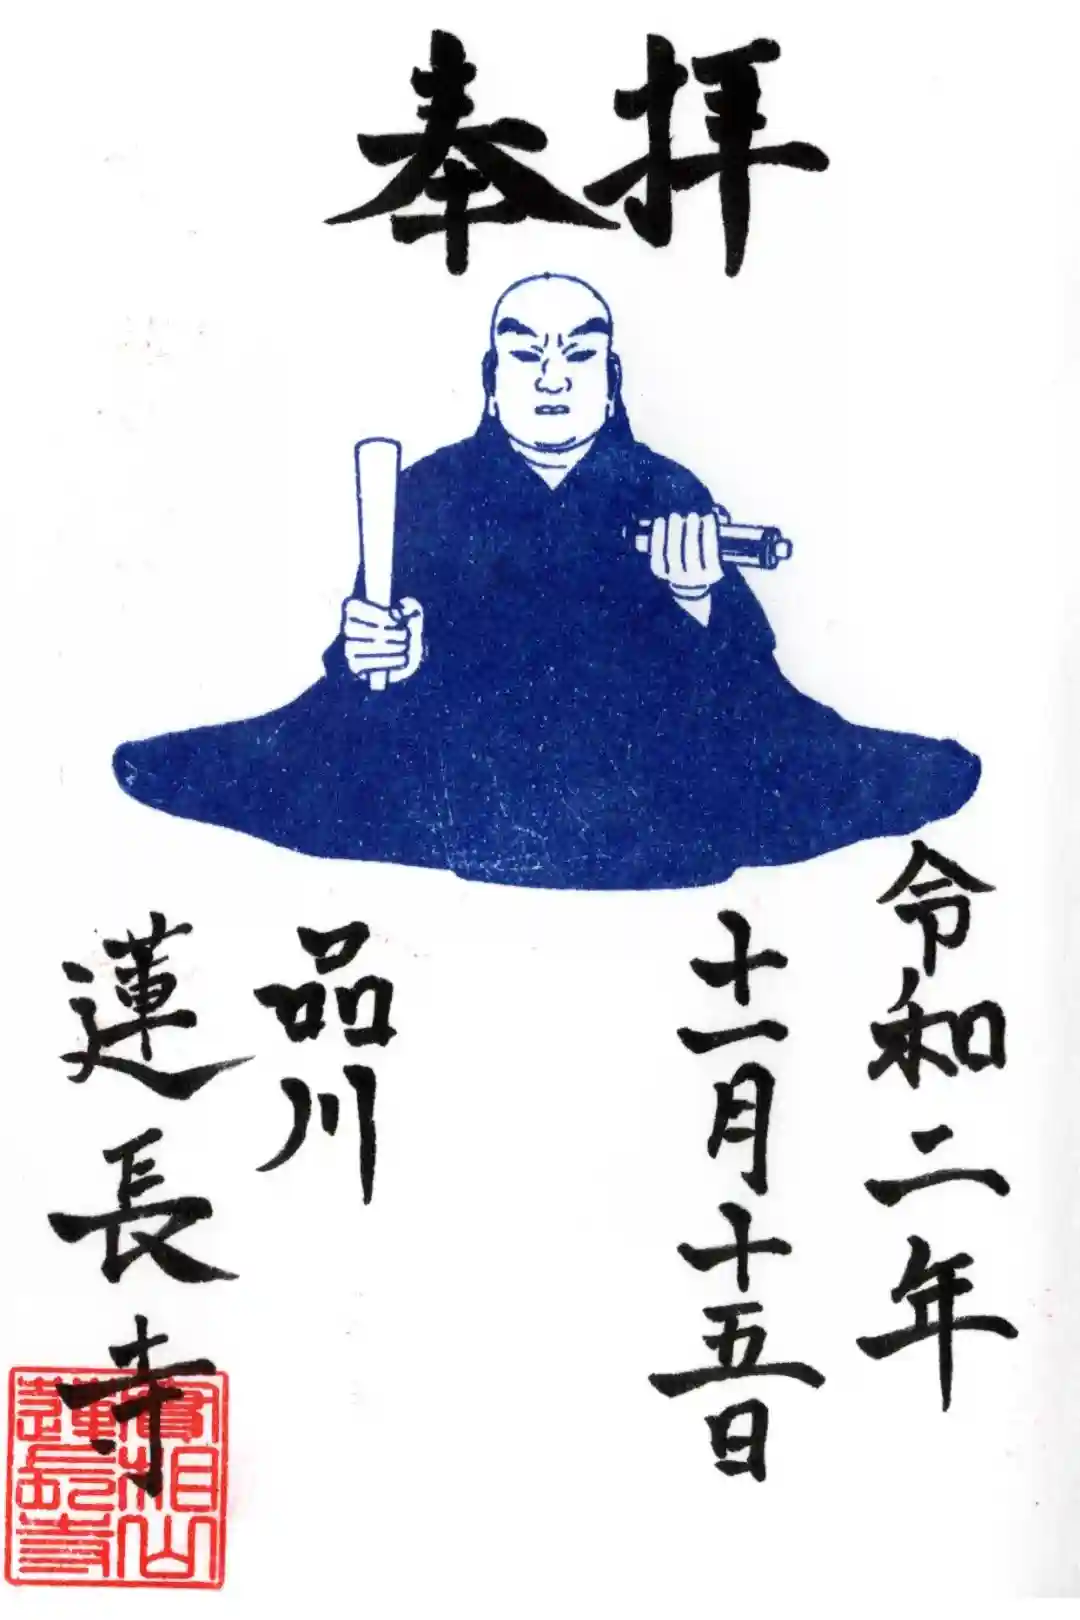 奉拝
令和二年
十一月十五日
品川
蓮長寺
實相山
蓮長寺